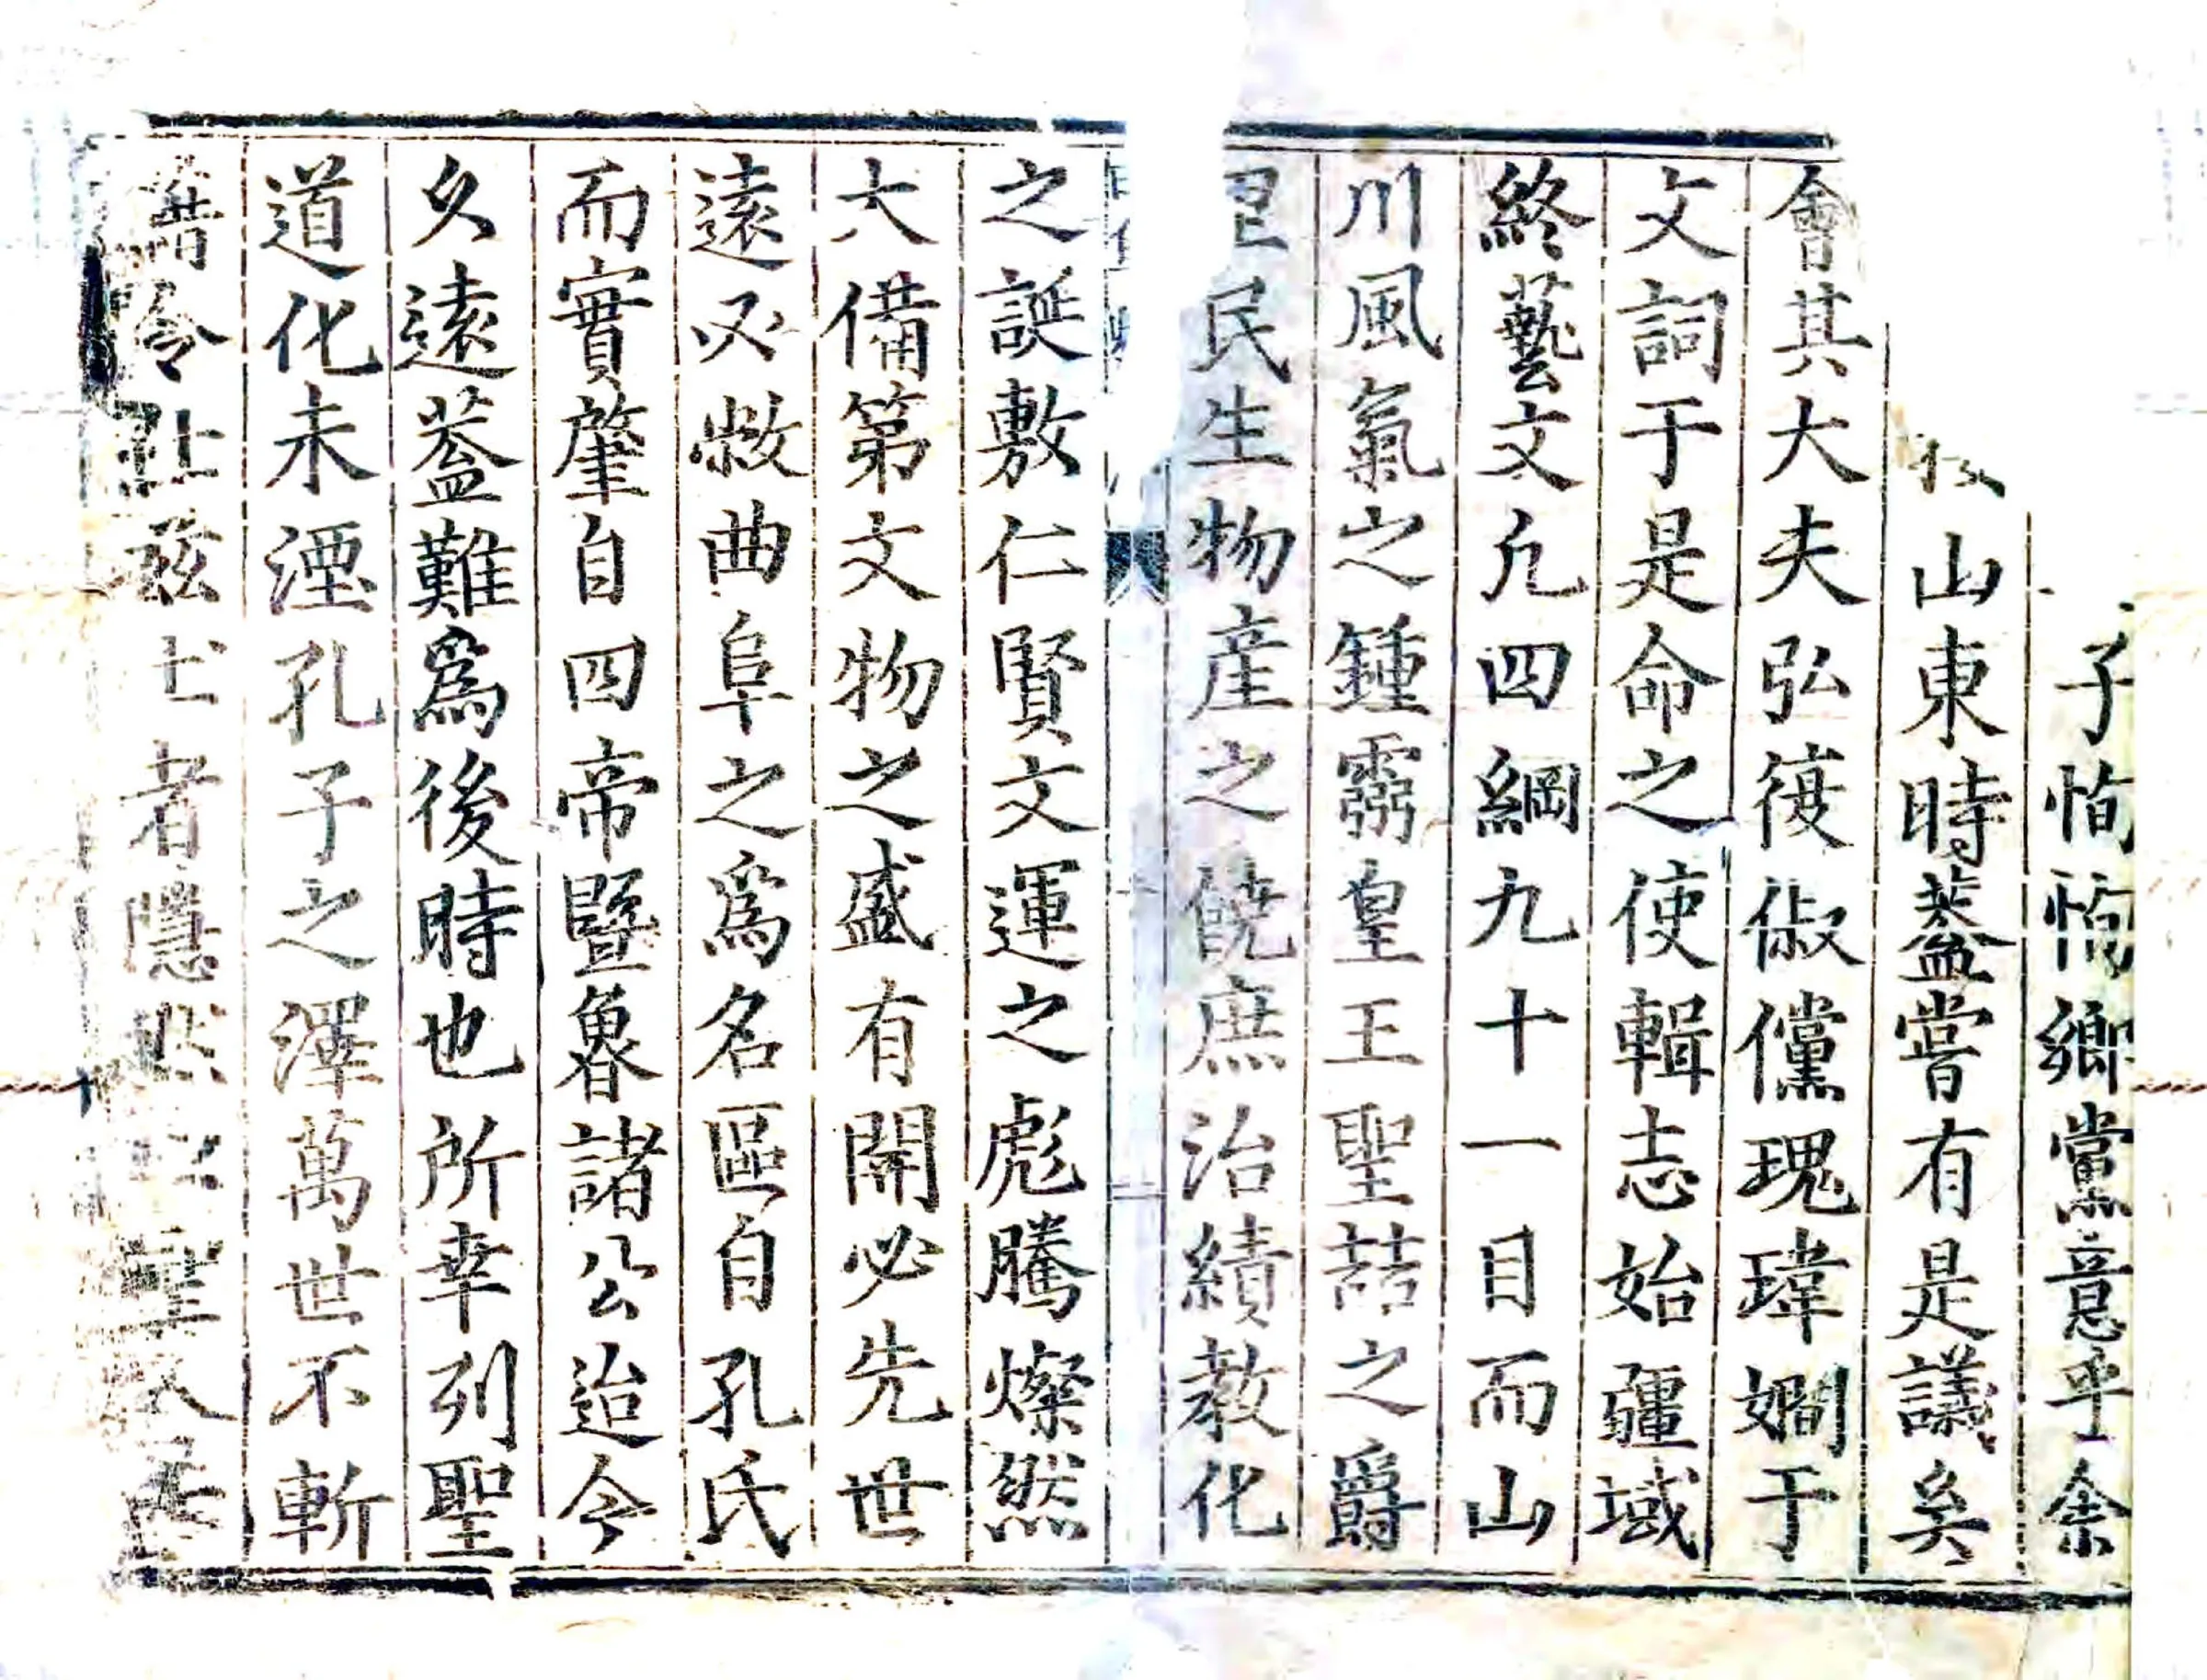 子恂恂鄉黨意乎余
牧山東時葢嘗有是議矣
會其大夫弘復俶儻瑰瑋嫺于
文詞于是命之使輯志始疆域
終藝文凢四綱九十一目而山
川風氣之鍾霛皇王聖喆之爵
里民生物産之饒庶治績教化
之誕敷仁賢文運之彪騰燦然
大備第文物之盛有開必先世
遠必敝曲阜之爲名區自孔氏
而實肇自四帝暨魯諸公迨今
久遠葢難爲後時也所幸列聖
道化未湮孔子之澤萬世不斬
藉令
兹土者隱然
聖人